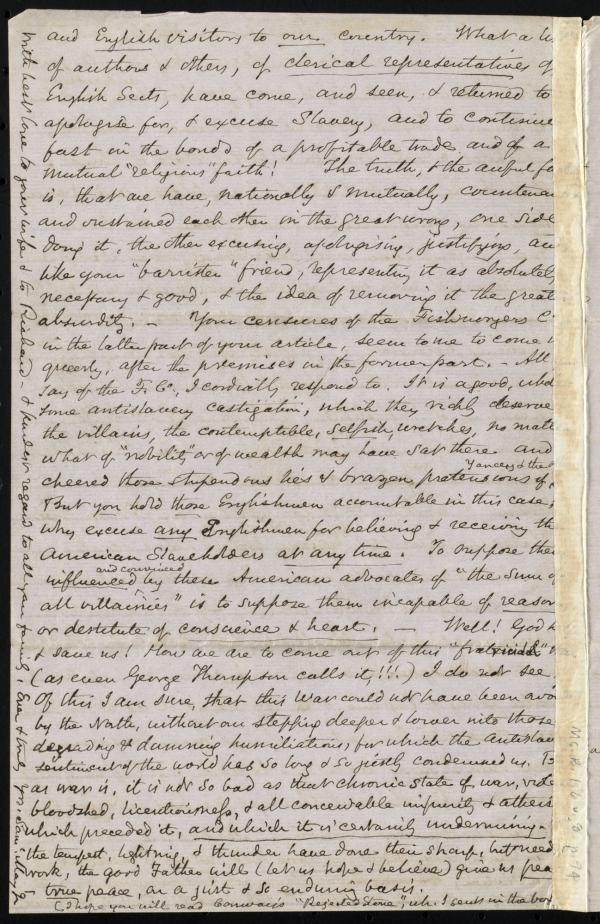 and English visitors to our country. What a
of authors & others, of clerical representatives of
English Sects, have come, and seen, & returned to
apologise for, & excuse Slavery, and to continue
fast in the bonds of a profitable trade, and of a
mutual "religious" faith! The truth, & the awful
is, that we have, nationally & mutually, countenan
and sustained each other in the great wrong, one side
doing it, the other excusing, apologising, justifying, an
like your "barrister" friend, representing it as absolutely
necessary & good, & the idea of removing it the great
absurdity. — Your censures of the Fishmongers C
in the latter part of your article, seem to me to come
queerly, after the premises in the former part. - All
say of the F. Co., I cordially respond to. It is a good, whol
some antislavery castigation, which they richly deserve
the villains, the contemptible, selfish, wretches, no matt
what of "nobility" or of wealth may have sat there and
cheered those stupendous lies & brazen pretensions of
Yancey & the
But you hold those Englishmen accountable in this case,
why excuse any Englishmen for believing & receiving th
American Slaveholders at any time. To suppose the
and convinced
influenced by these American advocates of "the sum o
all villainies" is to suppose them incapable of reason
or destitute of conscience & heart. — Well! God
& save us! How we are to come out of this "fratricidal"
(as even George Thompson calls it!!!) I do not see
Of this I am sure, that this War could not have been avo
by the North, without our stepping deeper & lower into those
degrading & damning humiliations, for which the Antislav
sentiment of the world has so long & so justly condemned us.
as war is, it is not so bad as that chronic state of war, viol
bloodshed, licentiousness, & all conceivable impurity & atheis
which preceded it, and which it is certainly undermining.
the tempest, lightning, & thunder have done their sharp, but need
work, the good Father will (let us hope & believe) give us
true peace, on a just & so enduring basis.
(I hope you will read Conway's "Rejected Stone", wh. I send in the box
With best love to your wife & to Richard - & kindest regard to all your family, Ever & truly Yrs, Saml. May Jr.